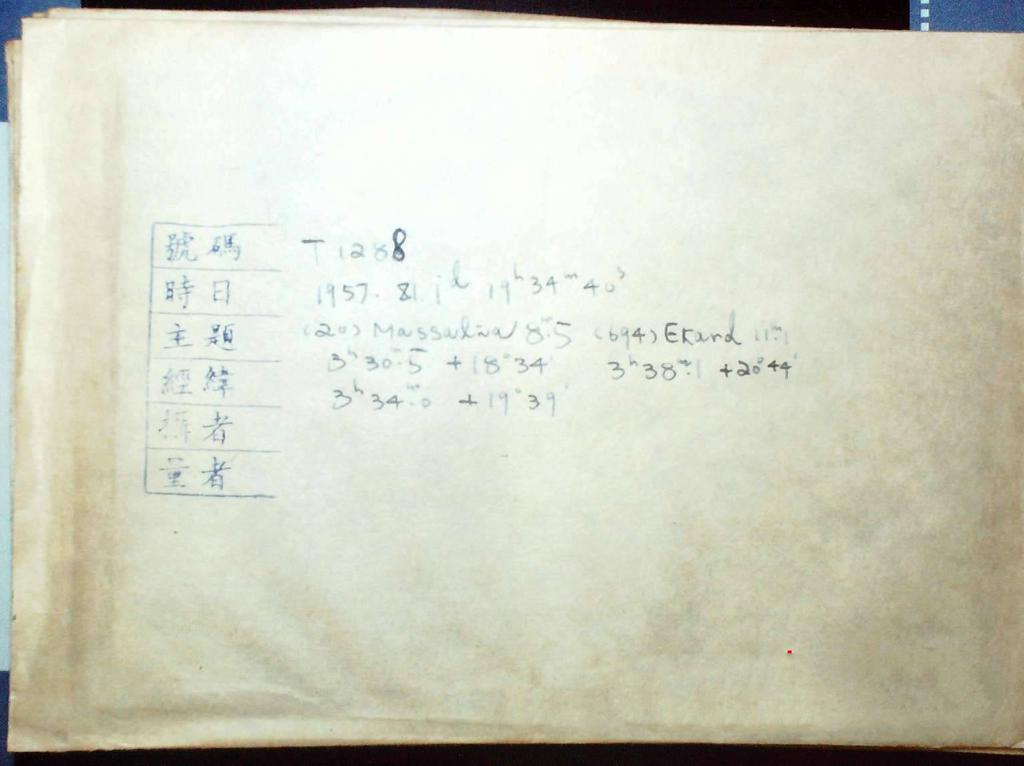 號碼 T1288
時日 1957. 81. 1d 19h34m40s
主題 (20) Massalia 8m.5 (694) Ekard 11m.1
3h30m.5 +18°34' 3h38m.1 +20°44'
經緯 3h34m.0 +19°39'
攝者
量者